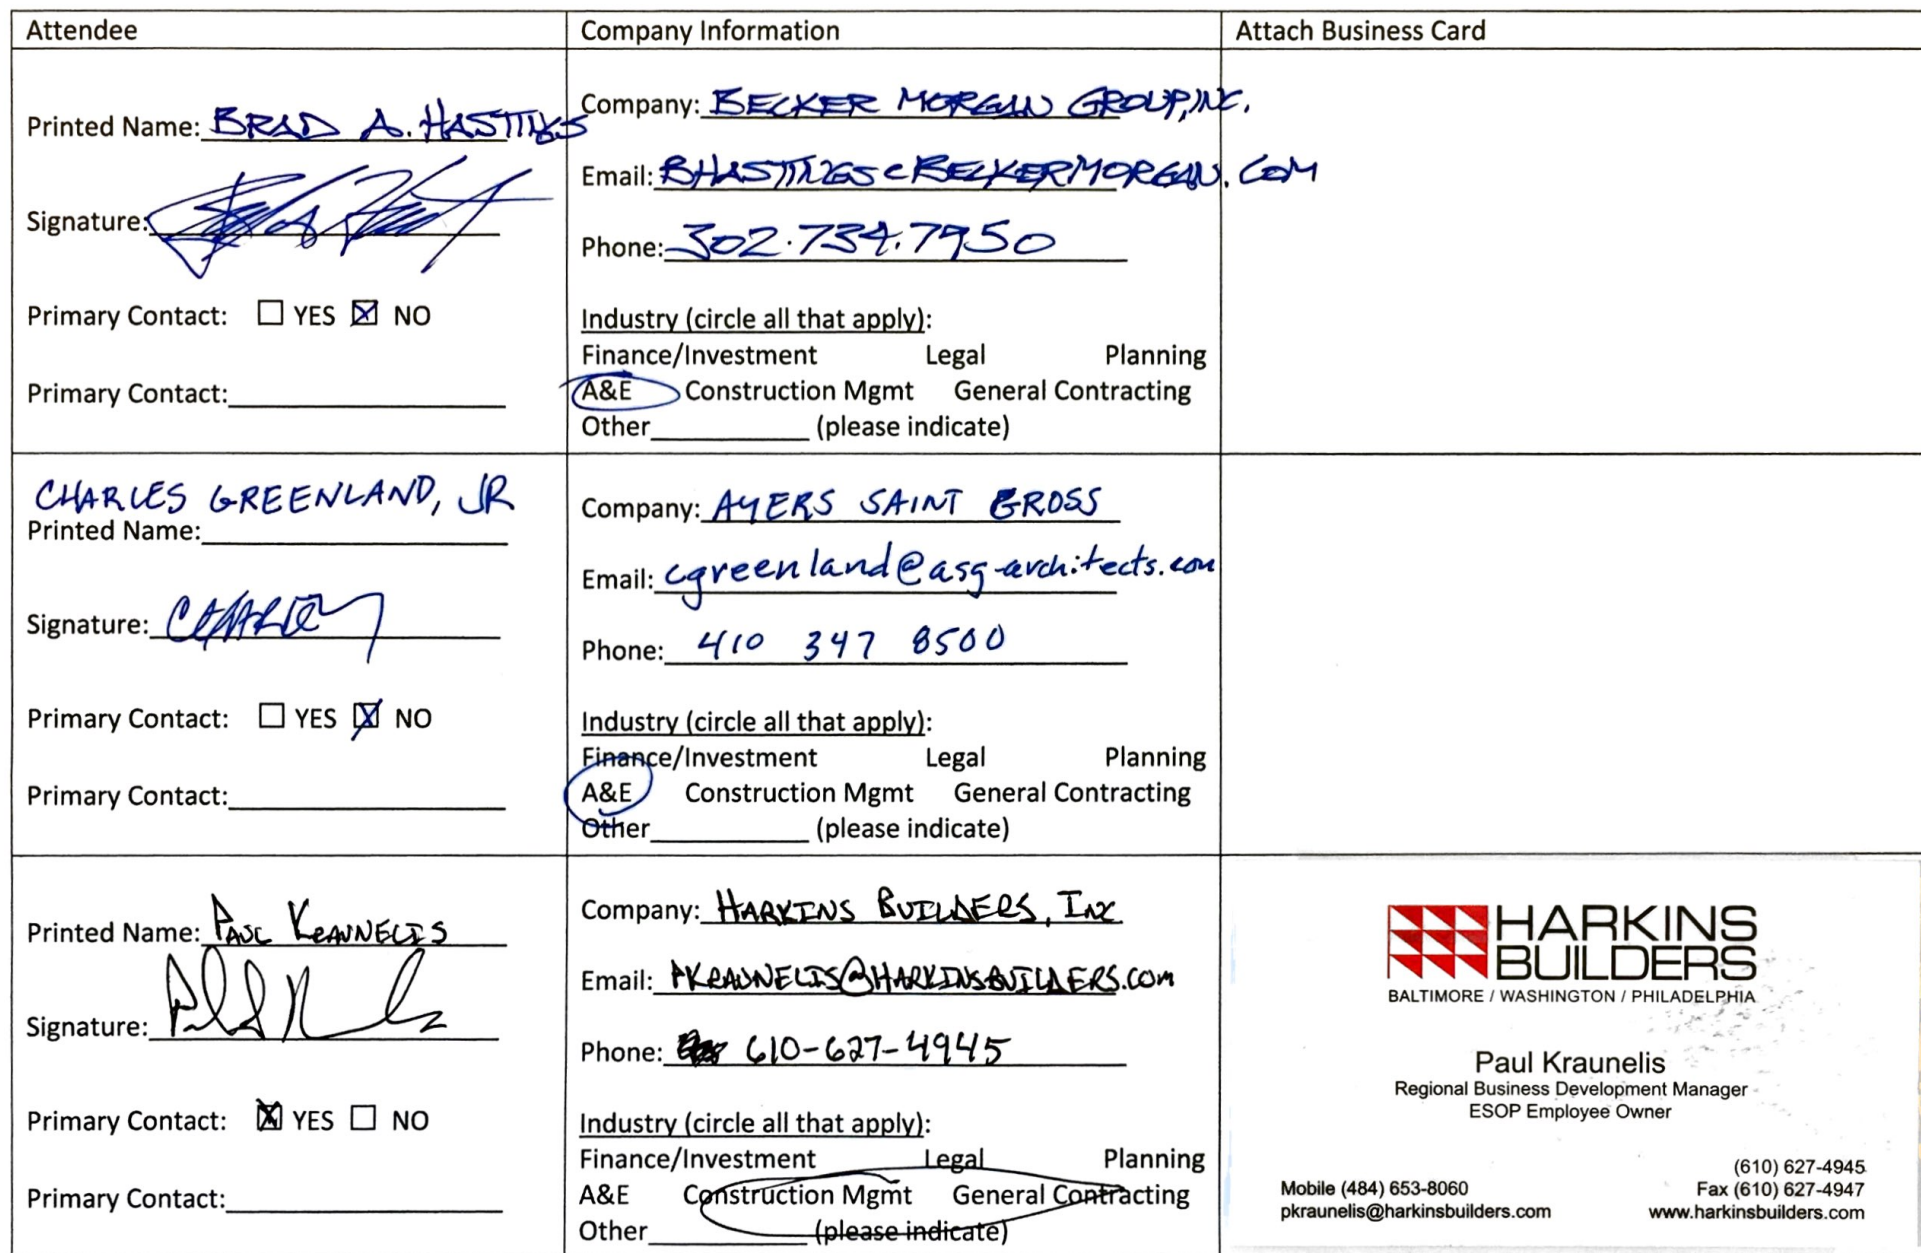 Attendee
Company Information
Attach Business Card
Printed Name: BRAD A. HASTINGS
Signature:
Primary Contact: ☐ YES ☒ NO
Primary Contact:
Company: BECKER MORGAN GROUP, INC.
Email: BHASTINGS@BECKERMORGAN.COM
Phone: 302.734.7950
Industry (circle all that apply):
Finance/Investment Legal Planning
A&E Construction Mgmt General Contracting
Other (please indicate)
CHARLES GREENLAND, JR
Printed Name:
Signature:
Primary Contact: ☐ YES ☒ NO
Primary Contact:
Company: AYERS SAINT GROSS
Email: cgreenland@asg-architects.com
Phone: 410 347 8500
Industry (circle all that apply):
Finance/Investment Legal Planning
A&E Construction Mgmt General Contracting
Other (please indicate)
Printed Name: PAUL KRAUNELIS
Signature:
Primary Contact: ☒ YES ☐ NO
Primary Contact:
Company: HARKINS BUILDERS, INC.
Email: PKRAUNELIS@HARKINSBUILDERS.COM
Phone: 610-627-4945
Industry (circle all that apply):
Finance/Investment Legal Planning
A&E Construction Mgmt General Contracting
Other (please indicate)
HARKINS
BUILDERS
BALTIMORE / WASHINGTON / PHILADELPHIA
Paul Kraunelis
Regional Business Development Manager
ESOP Employee Owner
(610) 627-4945
Mobile (484) 653-8060 Fax (610) 627-4947
pkraunelis@harkinsbuilders.com www.harkinsbuilders.com